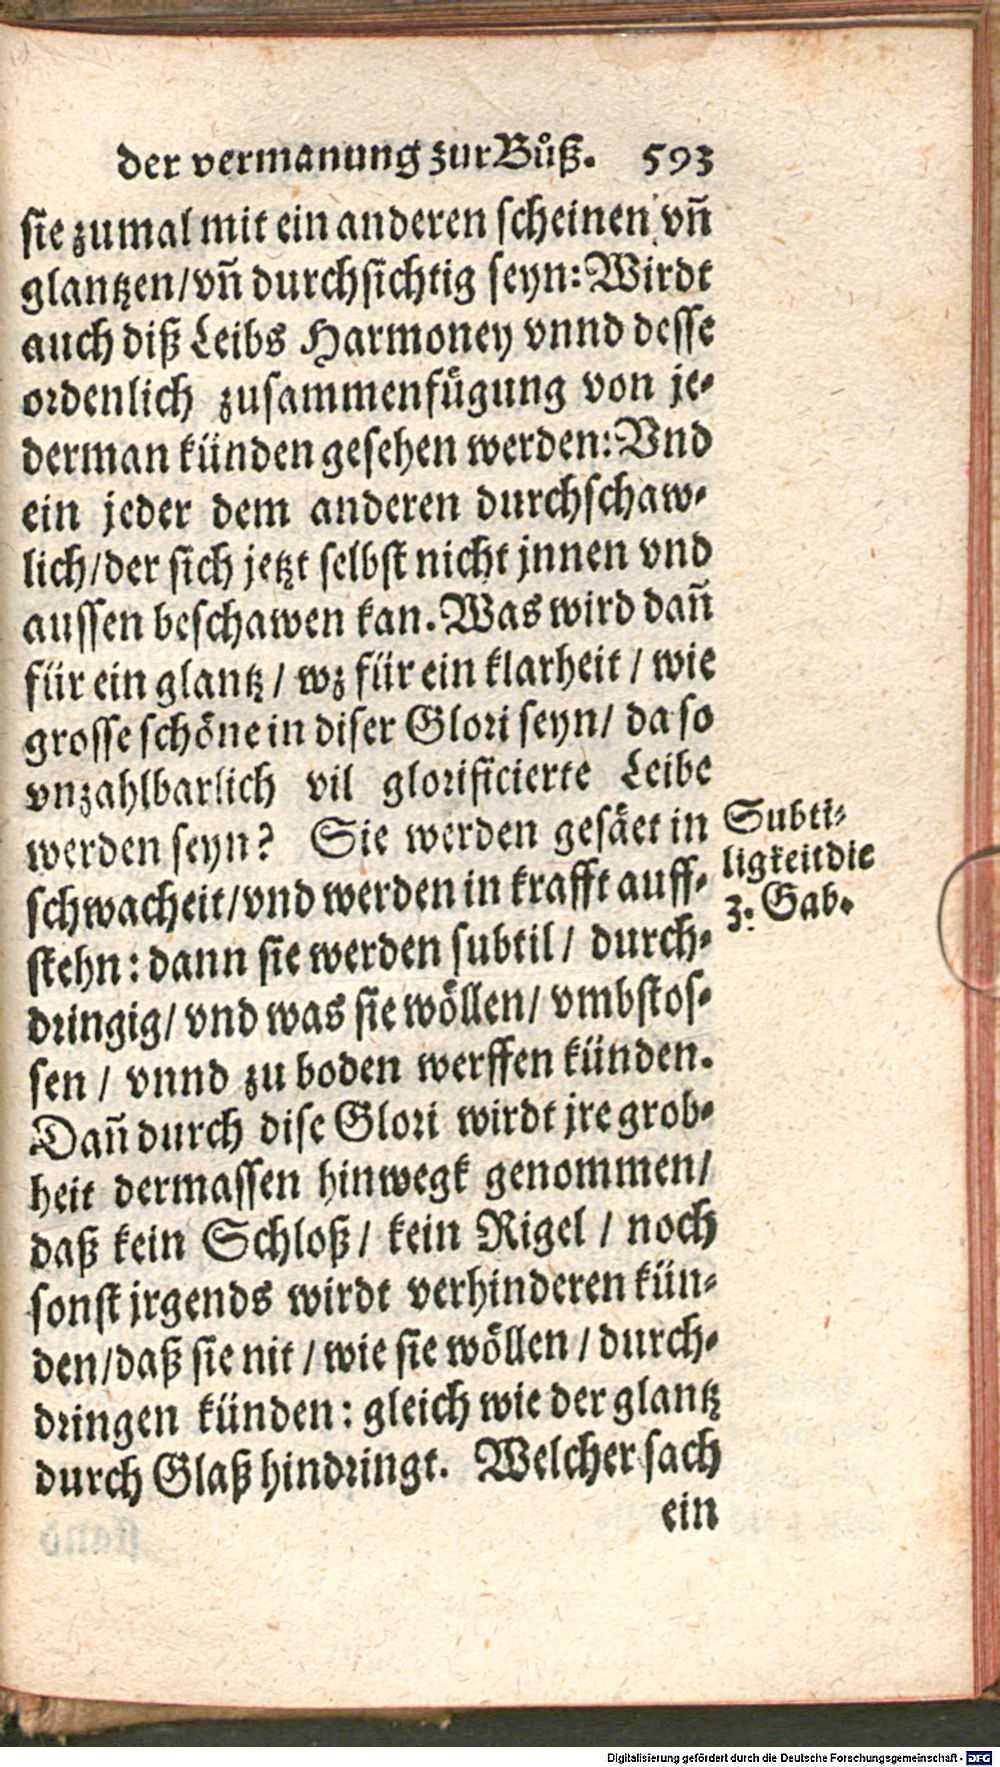 der vermanung zur Bůß. 593
sie zumal mit ein anderen scheinen vñ
glantzen/vñ durchsichtig seyn: Wirdt
auch diß Leibs Harmoney vnnd desse
ordenlich zusammenfügung von je-
derman künden gesehen werden: Vnd
ein jeder dem anderen durchschaw-
lich/der sich jetzt selbst nicht jnnen vnd
aussen beschawen kan. Was wird dañ
für ein glantz / wz für ein klarheit / wie
grosse schöne in diser Glori seyn/ da so
vnzahlbarlich vil glorificierte Leibe
werden seyn? Sie werden gesäet in
schwacheit/vnd werden in krafft auff-
stehn: dann sie werden subtil / durch-
dringig/ vnd was sie wöllen/ vmbstos-
sen / vnnd zu boden werffen künden.
Dañ durch dise Glori wirdt jre grob-
heit dermassen hinwegk genommen/
daß kein Schloß / kein Rigel / noch
sonst jrgends wirdt verhinderen kün-
den/daß sie nit / wie sie wöllen / durch-
dringen künden: gleich wie der glantz
durch Glaß hindringt. Welcher sach
ein
Subti-
ligkeit die
3. Gab.
Digitalisierung gefördert durch die Deutsche Forschungsgemeinschaft - DFG